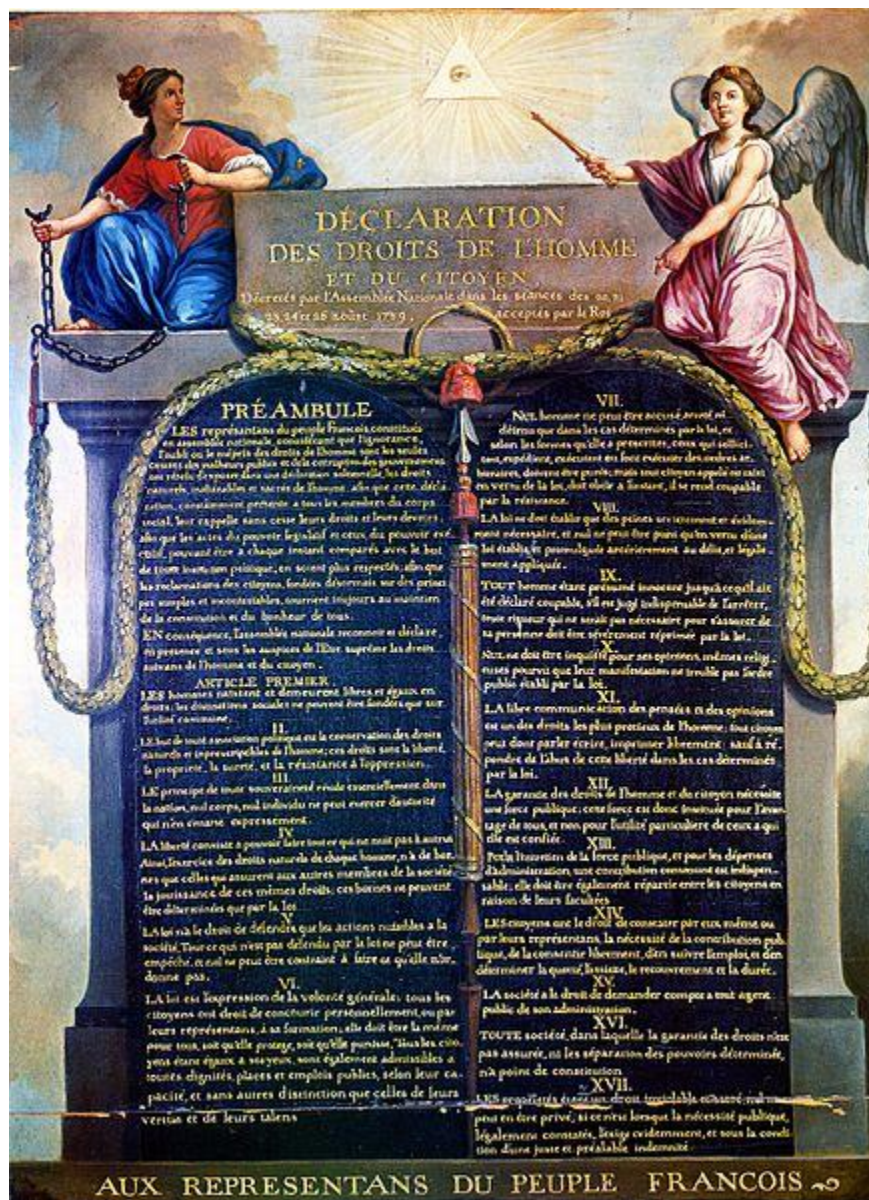 DÉCLARATION
DES DROITS DE L'HOMME
ET DU CITOYEN
Décretés par l'Assemblée Nationale dans les séances des 20, 21
23, 24 et 26 aoûst 1789, acceptés par le Roi
PRÉAMBULE
LES représentans du peuple François, constitués
en assemblée nationale, considérant que l'ignorance,
l'oubli ou le mépris des droits de l'homme sont les seules
causes des malheurs publics et de la corruption des gouvernemens
ont résolu d'exposer dans une déclaration solemnelle, les droits
naturels, inaliénables et sacrés de l'homme; afin que cette décla
ration, constamment présente a tous les membres du corps
social, leur rappelle sans cesse leurs droits et leurs devoirs;
afin que les actes du pouvoir législatif et ceux du pouvoir exé
cutif, pouvant être à chaque instant comparés avec le but
de toute institution politique, en soient plus respectés; afin que
les reclamations des citoyens, fondées désormais sur des princi
pes simples et incontestables, tournent toujours au maintien
de la constitution et du bonheur de tous.
EN conséquence, l'assemblée nationale reconnoit et déclare,
en presence et sous les auspices de l'Etre suprême les droits
suivans de l'homme et du citoyen.
ARTICLE PREMIER.
LES hommes naissent et demeurent libres et égaux en
droits; les distinctions sociales ne peuvent être fondées que sur
l'utilité commune.
II.
LE but de toute association politique est la conservation des droits
naturels et inprescriptibles de l'homme; ces droits sont la liberté,
la propriété, la sureté, et la résistance à l'oppression.
III.
LE principe de toute souveraineté réside essentiellement dans
la nation, nul corps, nul individu ne peut exercer d'autorité
qui n'en émane expressement.
IV.
LA liberté consiste a pouvoir faire tout ce qui ne nuit pas à autrui
Ainsi, l'exercice des droits naturels de chaque homme, n'a de bor
nes que celles qui assurent aux autres membres de la société
la jouissance de ces mêmes droits; ces bornes ne peuvent
être déterminées que par la loi
V.
LA loi n'a le droit de défendre que les actions nuisibles a la
société. Tout ce qui n'est pas défendu par la loi ne peut être
empêché, et nul ne peut être contraint à faire ce qu'elle n'or-
donne pas.
VI.
LA loi est l'expression de la volonté générale; tous les
citoyens ont droit de concourir personnellement, ou par
leurs représentans, à sa formation; elle doit être la même
pour tous, soit qu'elle protege, soit qu'elle punisse, Tous les cito
yens étant égaux à ses yeux, sont également admissibles a
toutes dignités, places et emplois publics, selon leur ca
pacité, et sans autres distinction que celles de leurs
vertus et de leurs talens
VII.
NUL homme ne peut être accusé, arreté ni
détenu que dans les cas déterminés par la loi, et
selon les formes qu'elle a prescrites, ceux qui sollici-
tent, expédient, exécutent ou font exécuter des ordres ar-
bitraires, doivent être punis; mais tout citoyen appelé ou saisi
en vertu de la loi, doit obéir a l'instant, il se rend coupable
par la résistance.
VIII.
LA loi ne doit établir que des peines strictement et évidem-
ment nécessaire, et nul ne peut être puni qu'en vertu d'une
loi établie, et promulguée antérieurement au délit, et légale-
ment appliquée.
IX.
TOUT homme étant présumé innocent jusqu'à ce qu'il ait
été déclaré coupable, s'il est jugé indispensable de l'arrêter,
toute rigueur qui ne serait pas nécessaire pour s'assurer de
sa personne doit être sévèrement réprimée par la loi.
X.
NUL ne doit être inquiété pour ses opinions, mêmes religi
euses pourvu que leur manifestation ne trouble pas l'ordre
public établi par la loi.
XI.
LA libre communication des pensées et des opinions
est un des droits les plus precieux de l'homme; tout citoyen
peut donc parler écrire, imprimer librement: sauf à ré
pondre de l'abus de cette liberté dans les cas déterminés
par la loi.
XII.
LA garantie des droits de l'homme et du citoyen nécessite
une force publique; cette force est donc instituée pour l'avan
tage de tous, et non pour l'utilité particuliere de ceux a qui
elle est confiée.
XIII.
POUR l'entretien de la force publique, et pour les dépenses
d'administration, une contribution commune est indispen-
sable; elle doit être également répartie entre les citoyens en
raison de leurs facultées
XIV.
LES citoyens ont le droit de constater par eux même ou
par leurs représentans, la nécessité de la contribution pub
lique, de la consentir librement, d'en suivre l'emploi, et d'en
déterminer la quotité, l'assiette, le recouvrement et la durée.
XV.
LA société a le droit de demander compte a tout agent
public de son administration.
XVI.
TOUTE société, dans laquelle la garantie des droits n'est
pas assurée, ni les séparation des pouvoirs déterminée,
n'a point de constitution
XVII.
LES propriétés étant un droit inviolable et sacré, nul ne
peut en être privé, si ce n'est lorsque la nécessité publique,
légalement constatée, l'exige évidemment, et sous la condi
tion d'une juste et préalable indemnité
AUX REPRESENTANS DU PEUPLE FRANCOIS